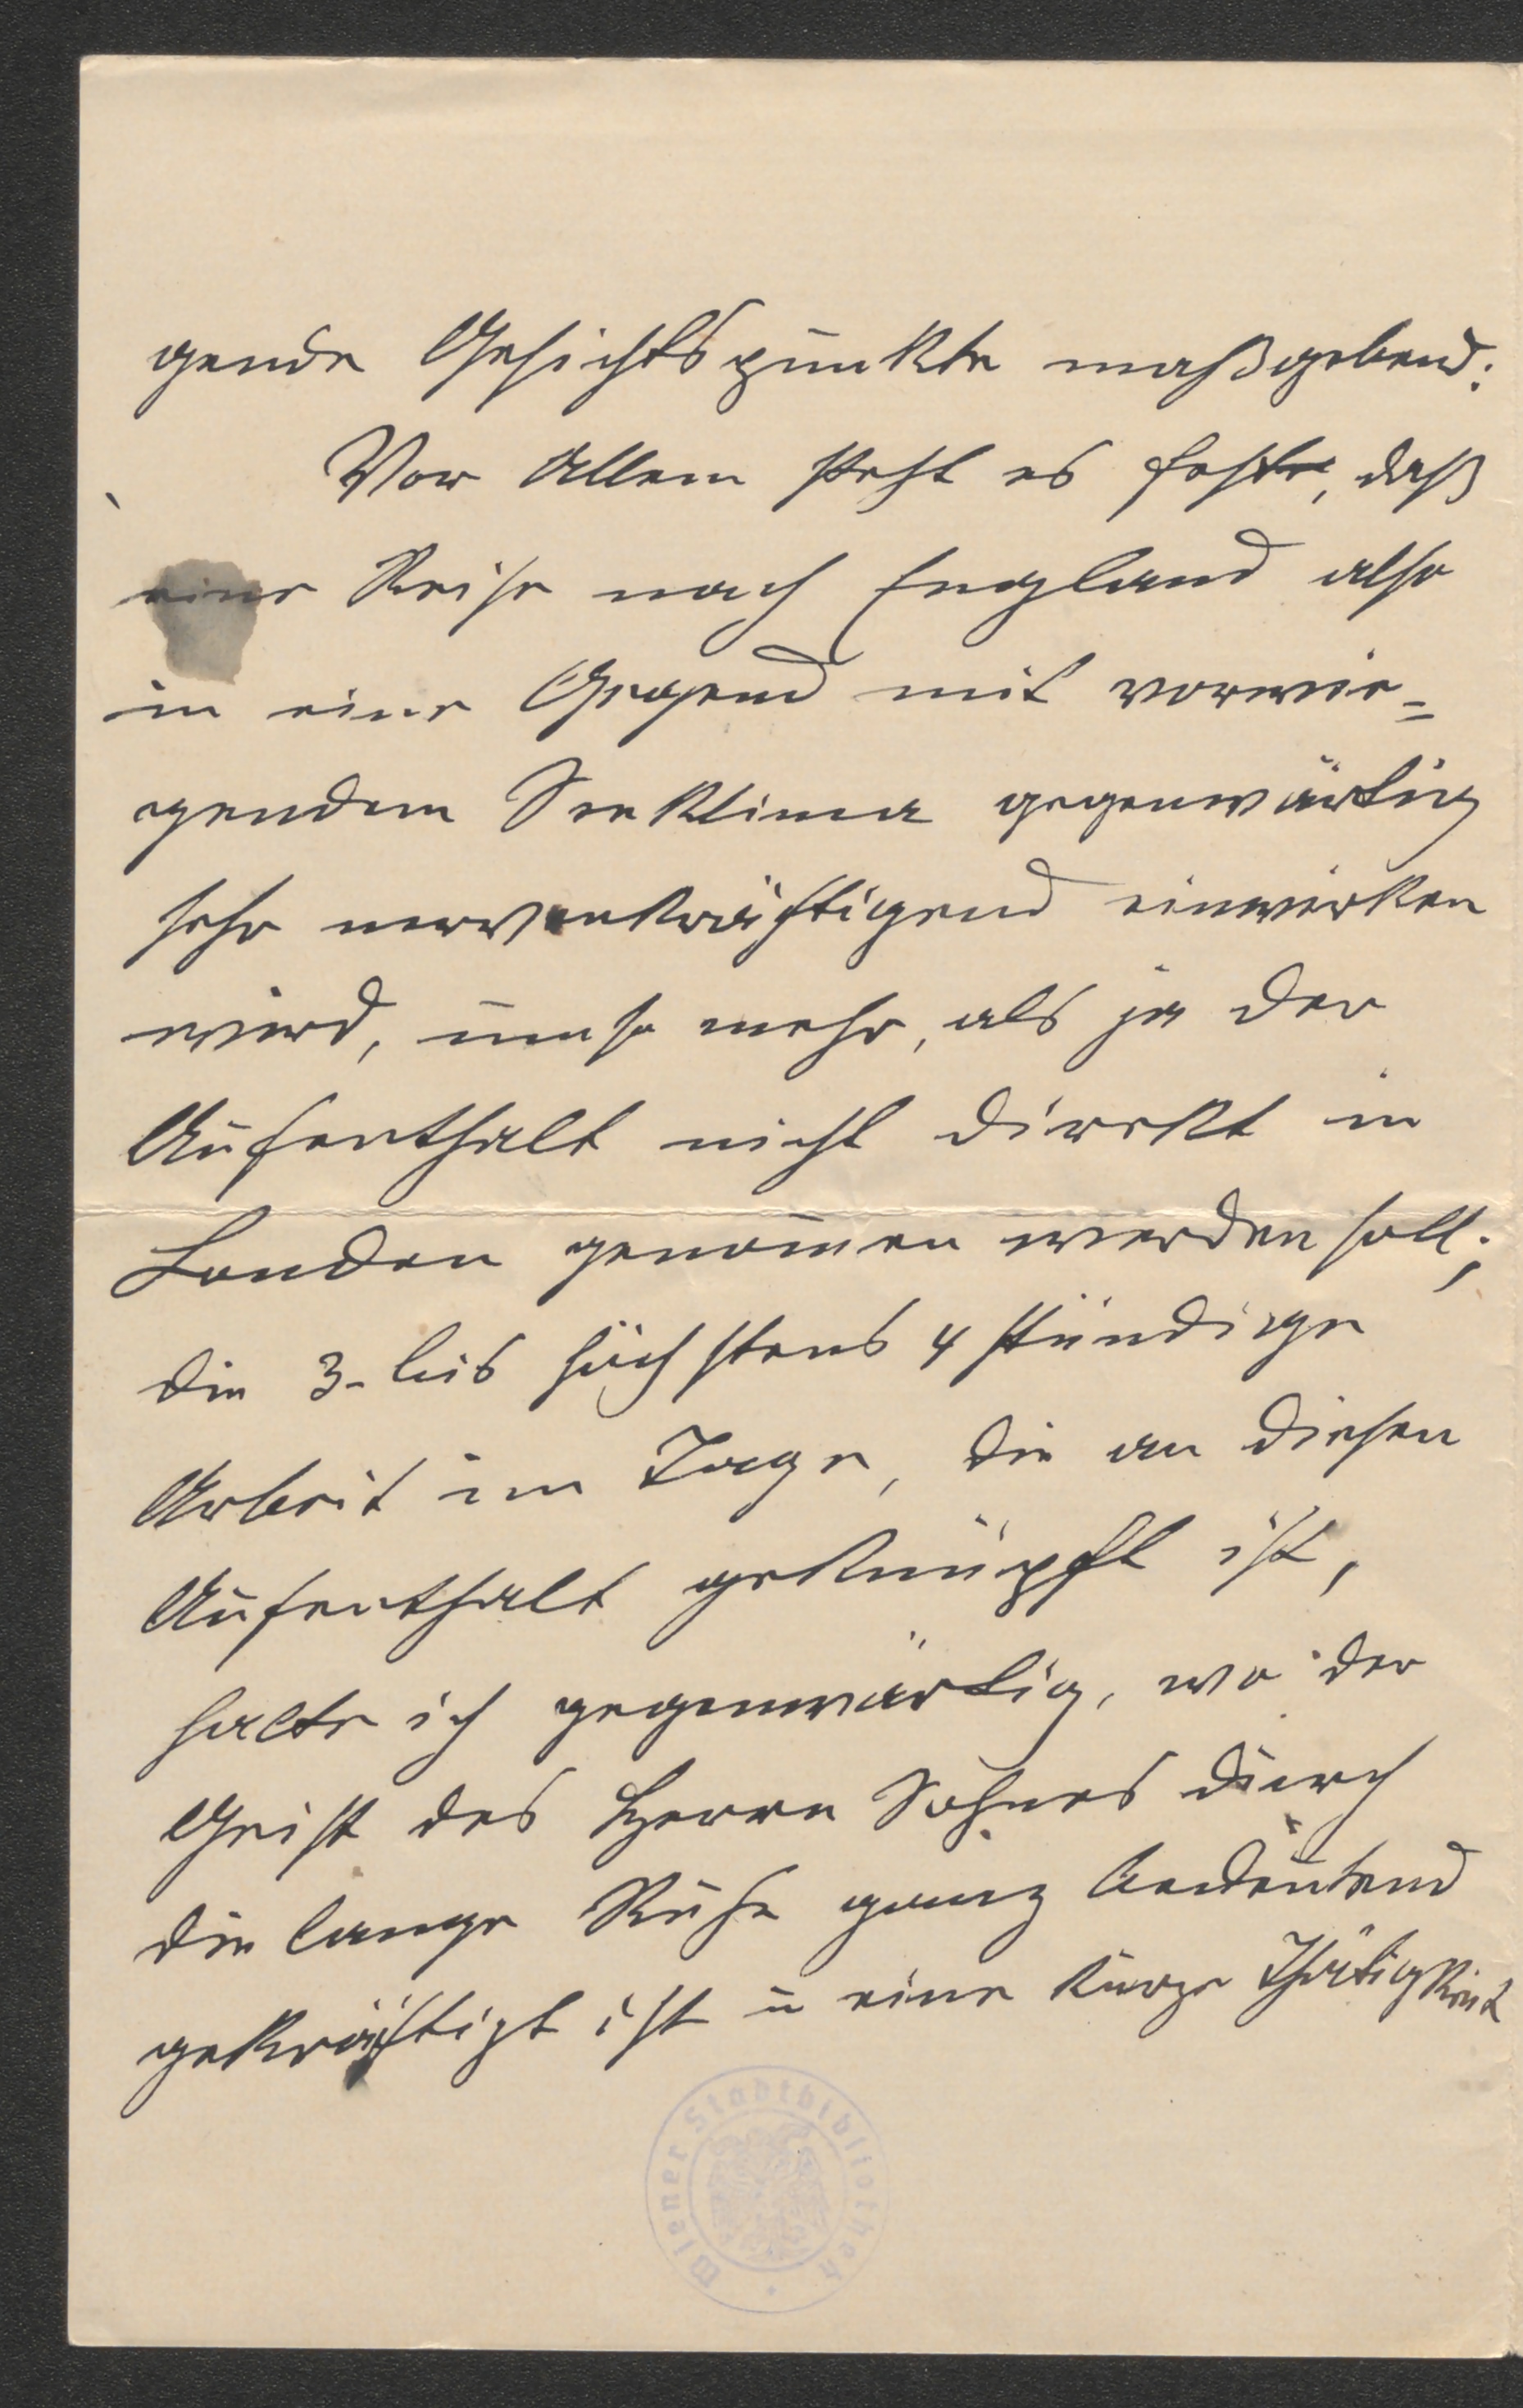 gende Gesichtspunkte maßgebend:
Vor Allem steht es feste, daß
eine Reise nach England also
in eine Gegend mit vorwie=
gendem Seeklima gegenwärtig
sehr nervenkräftigend einwirken
wird, umso mehr, als ja der
Aufenthalt nicht direkt in
London genom̄en werden soll;
die 3- bis höchstens 4 stündige
Arbeit im Tage, die an diesen
Aufenthalt geknüpft ist,
halte ich gegenwärtig, wo der
Geist des Herrn Sohnes durch
die lange Ruhe ganz bedeutend
gekräftigt ist u eine kurze Thätigkeit
Wiener Stadtbibliothek